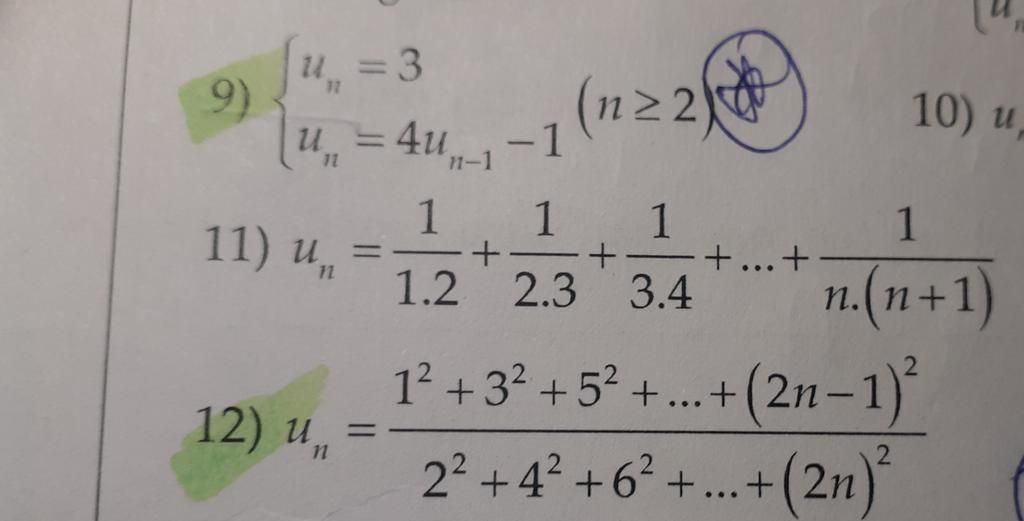 9) { u_n = 3
u_n = 4u_{n-1} - 1 (n ≥ 2)
10) u
11) u_n = 1/1.2 + 1/2.3 + 1/3.4 + ... + 1/n.(n+1)
12) u_n = (1² + 3² + 5² + ... + (2n-1)²)/(2² + 4² + 6² + ... + (2n)²)